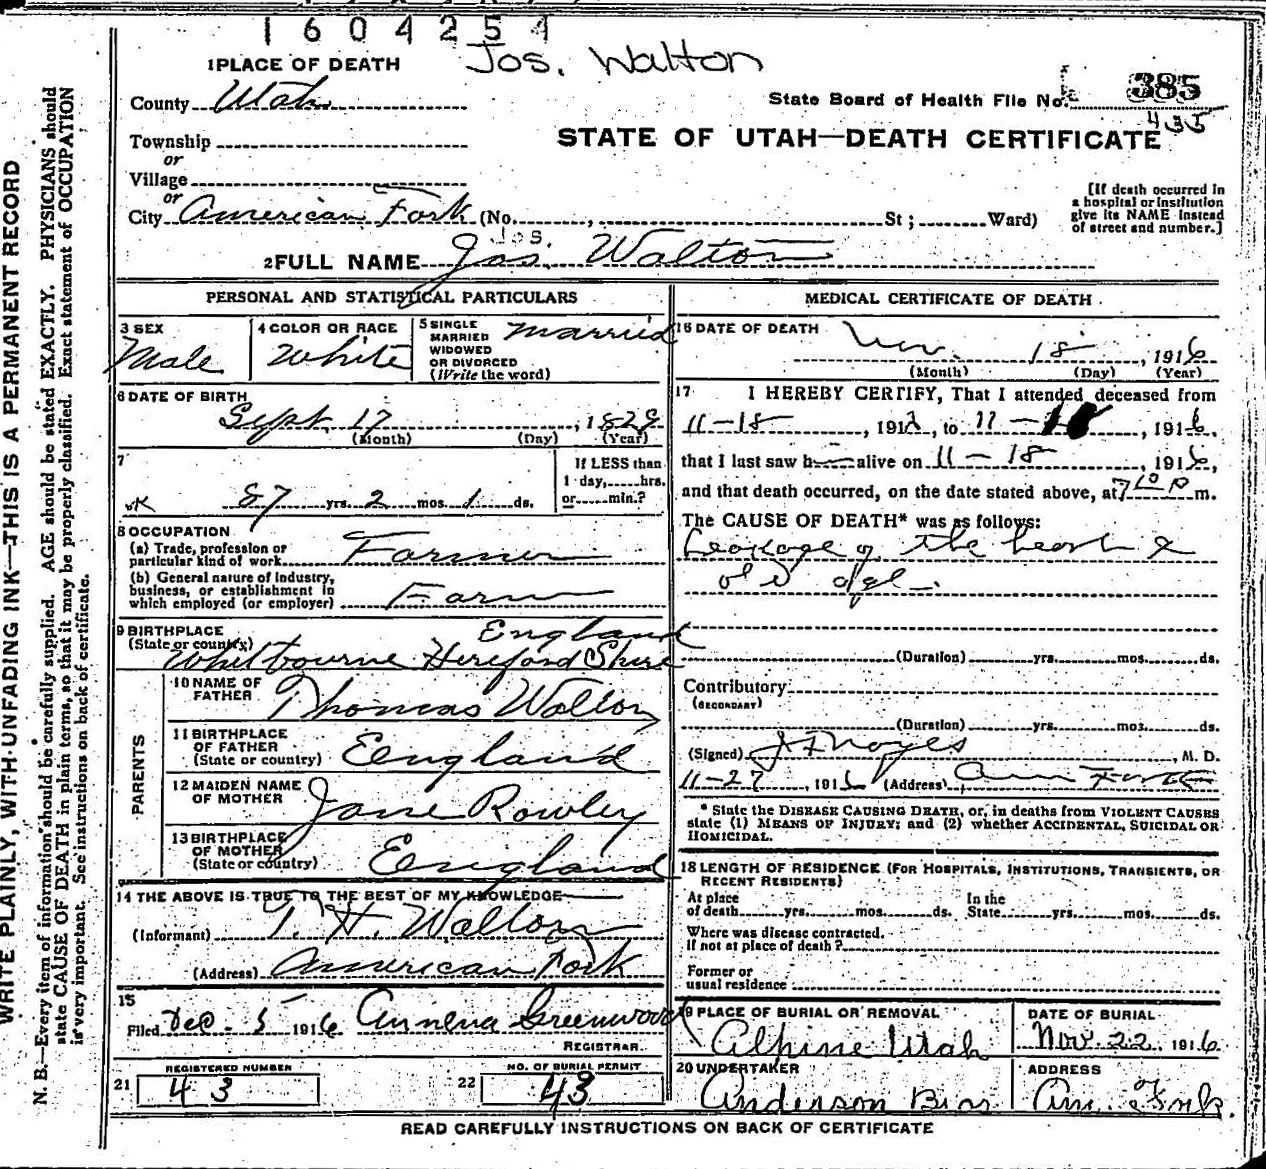 1604254
Jos. Walton
1 PLACE OF DEATH
County Utah
State Board of Health File No. 385
435
Township
or
Village
or
STATE OF UTAH—DEATH CERTIFICATE
City American Fork (No. , St ; Ward)
[If death occurred in a hospital or institution give its NAME instead of street and number.]
Jos.
2 FULL NAME Jas Walton
PERSONAL AND STATISTICAL PARTICULARS
3 SEX Male
4 COLOR OR RACE White
5 SINGLE MARRIED WIDOWED OR DIVORCED (Write the word) Married
6 DATE OF BIRTH
Sept. 17, 1829
(Month) (Day) (Year)
7
87 yrs. 2 mos. 1 ds.
If LESS than 1 day, hrs. or min.?
8 OCCUPATION
(a) Trade, profession or particular kind of work Farmer
(b) General nature of industry, business, or establishment in which employed (or employer) Farm
9 BIRTHPLACE
(State or country) England
Whitbourne Hereford Shire
PARENTS
10 NAME OF FATHER Thomas Walton
11 BIRTHPLACE OF FATHER (State or country) England
12 MAIDEN NAME OF MOTHER Jane Rowley
13 BIRTHPLACE OF MOTHER (State or country) England
14 THE ABOVE IS TRUE TO THE BEST OF MY KNOWLEDGE
(Informant) T. H. Walton
(Address) American Fork
15
Filed Dec - 5 1916 Annena Greenwood
REGISTRAR.
21 REGISTERED NUMBER 43
22 NO. OF BURIAL PERMIT 43
MEDICAL CERTIFICATE OF DEATH
16 DATE OF DEATH
Nov. 18, 1916
(Month) (Day) (Year)
17 I HEREBY CERTIFY, That I attended deceased from
11-18, 191 , to 11 - , 1916,
that I last saw h alive on 11 - 18, 1916,
and that death occurred, on the date stated above, at 7 10 p m.
The CAUSE OF DEATH* was as follows:
Leakage of the heart &
old age -
(Duration) yrs. mos. ds.
Contributory
(SECONDARY)
(Duration) yrs. mos. ds.
(Signed) J F Noyes, M. D.
11-27, 1916 (Address) Am Fork
* State the DISEASE CAUSING DEATH, or, in deaths from VIOLENT CAUSES
state (1) MEANS OF INJURY; and (2) whether ACCIDENTAL, SUICIDAL OR
HOMICIDAL.
18 LENGTH OF RESIDENCE (FOR HOSPITALS, INSTITUTIONS, TRANSIENTS, OR
RECENT RESIDENTS)
At place of death yrs. mos. ds. In the State yrs. mos. ds.
Where was disease contracted.
If not at place of death?
Former or
usual residence
19 PLACE OF BURIAL OR REMOVAL
Alpine Utah
DATE OF BURIAL
Nov. 22 1916
20 UNDERTAKER
Anderson Bros
ADDRESS
Am. Fork.
READ CAREFULLY INSTRUCTIONS ON BACK OF CERTIFICATE
WRITE PLAINLY, WITH UNFADING INK—THIS IS A PERMANENT RECORD
N. B.—Every item of information should be carefully supplied. AGE should be stated EXACTLY. PHYSICIANS should
state CAUSE OF DEATH in plain terms, so that it may be properly classified. Exact statement of OCCUPATION
is very important. See instructions on back of certificate.